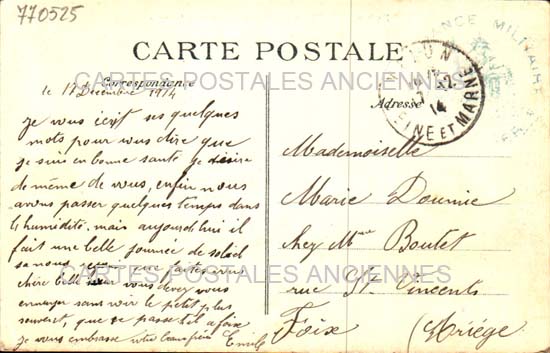 770525
CARTE POSTALE
CARTES POSTALES ANCIENNES
Correspondance
Adresse
MELUN
12
14
SEINE ET MARNE
MILITAIRE
le 11 Décembre 1914
Je vous ecrit ses quelques
mots pour vous dire que
je suis en bonne santé je désire
de même de vous, enfin nous
avons passer quelques temps dans
l'humidité, mais aujourd'hui il
fait une belle journée de soleil
sa nous
chère belle sœur vous devez vous
ennuyer sans voir le petit plus
souvent, que se passe t'il a foix
je vous embrasse votre beau frère Emile
Mademoiselle
Marie Doumie
chez Mme Boutet
rue St Vincents
Foix (Ariège
CARTES POSTALES ANCIENNES